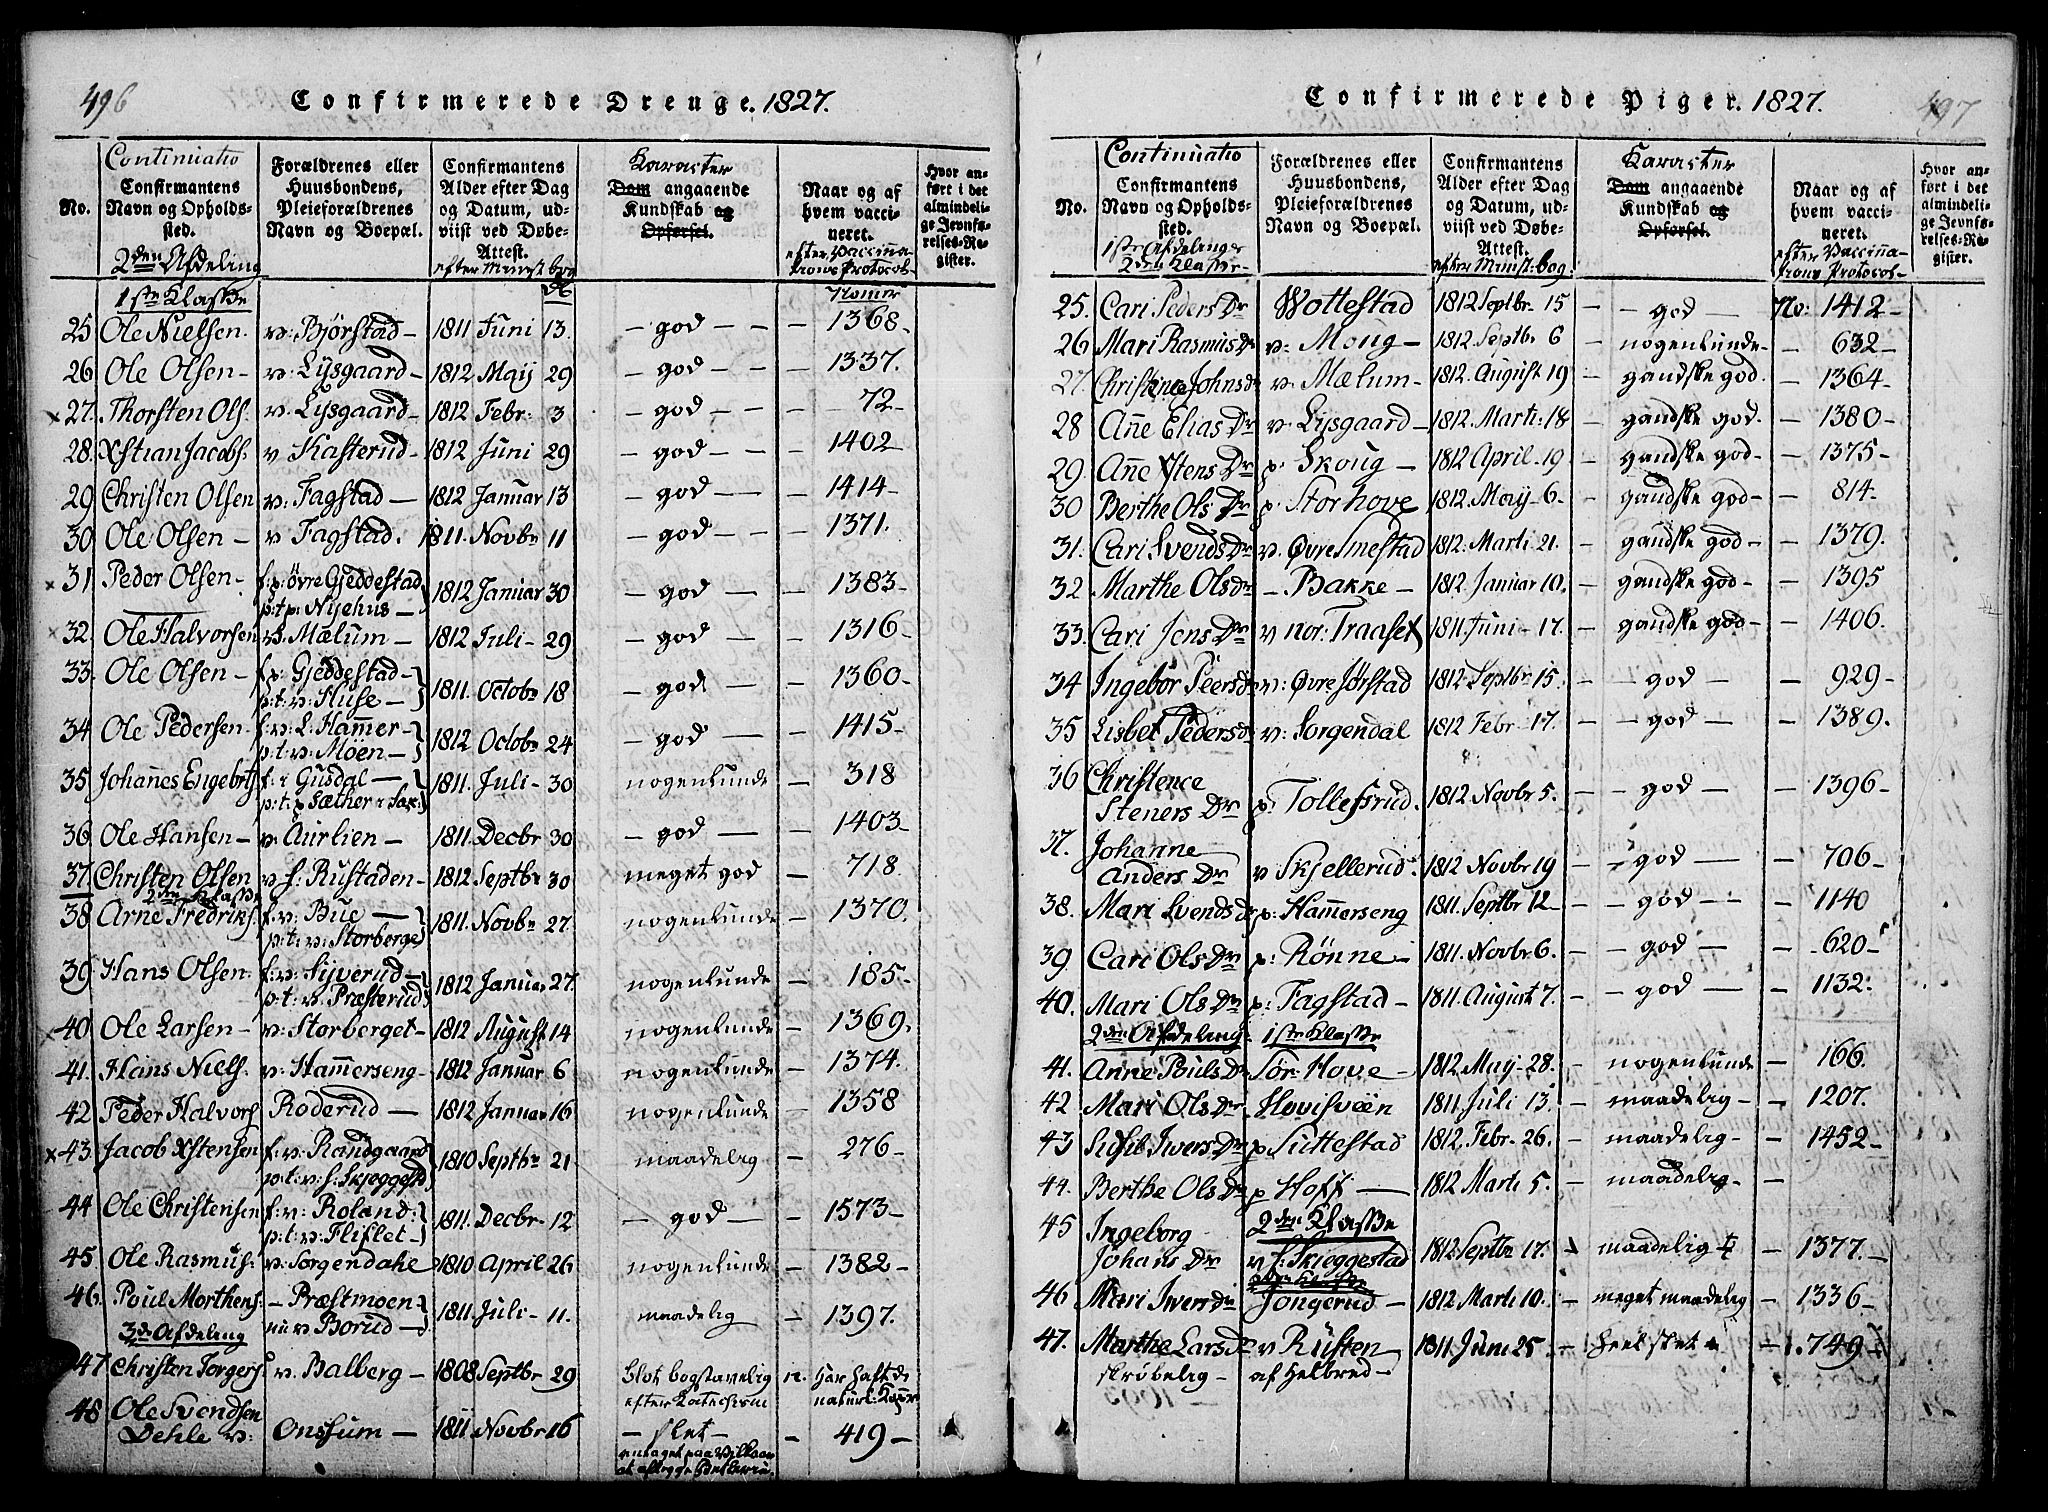 496
Confirmerede Drenge. 1827.
No.
Continuatio
Confirmantens
Navn og Opholds-
sted.
2den Afdeling
Forældrenes eller
Huusbondens,
Pleieforældrenes
Navn og Boepæl.
Confirmantens
Alder efter Dag
og Datum, ud-
viist ved Døbe-
Attest.
efter Minist bog
Karacter
Dom angaaende
Kundskab og
Opførsel.
Naar og af
hvem vacci-
neret.
efter Vaccina-
tions Protocol
Hvor an-
ført i det
almindeli-
ge Jevnfø-
relses-Re-
gister.
1ste Klasse
25 Ole Nielsen v: Bjørstad 1811 Juni 13. god 1368
26 Ole Olsen v: Lysgaard 1812 Maij 29 god 1337.
27. Thorsten Ols. v. Lysgaard 1812 Febr: 3 god 72
28. Xstian Jacobs. v Kasterud 1812 Juni 29 god 1402
29 Christen Olsen v: Fagstad 1812 Januar 13 god 1414
30 Ole Olsen v Fagstad. 1811. Novbr 11 god 1371.
31. Peder Olsen f: p: øvre Gjeddestad
p: t p: Nyehus 1812 Januar 30 god 1383
32. Ole Halvorsen v. Mælum 1812 Juli 29 god 1316
33. Ole Olsen f. p: Gjeddestad
p: t: v: Huse 1811. Octobr 18 god 1360
34 Ole Pedersen f: v: L. Hammer
p: t v: Moen 1812 Octobr 24 god 1415
35 Johannes Engebrts. f: i Gusdal
p: t: p Sæther i Fak: 1811. Juli 30 nogenlunde 318
36. Ole Hansen v Aurlien 1811. Decbr 30 god 1403
37. Christen Olsen v: s. Rustaden 1812 Septbr 30 meget god 718.
2den Klasse
38 Arne Fredriks. f: v: Bue
p: t: v: Storberget 1811. Novbr 27. nogenlunde 1370.
39. Hans Olsen f: v: Syverud
p: t: v: Præsterud 1812 Januar 27. nogenlunde 185
40. Ole Larsen v: Storberget 1812 August 14 nogenlunde 1369.
41. Hans Niels. v: Hammerseng 1812 Januar 6 nogenlunde 1374.
42 Peder Halvors. Roderud 1812 Januar 16 nogenlunde 1358
43. Jacob Xstensen f: v: Randgaard
p: t: v: s. Skjeggestd 1810 Septbr 21 maadelig 276
44 Ole Christensen f: v: Roland:
p: t: v: Fliflet 1811. Decbr 12 god 1573
45 Ole Rasmus. v: Sorgendahl 1810 April 26 nogenlunde 1382
46. Poul Morthens. Præstmoen
nu v Borud 1811. Juli 11. maadelig 1397.
3de Afdeling
47 Christen Torgers. v. Balberg 1808 Septbr 29 Blot bogstavelig
efter Katechism
n. Har haft de
naturl: Kopper
48 Ole Svendsen
Dehle v: Onssum 1811 Novbr 16 slet 419
antaget paa Vilkaar
497
Confirmerede Piger. 1827.
No.
Continuatio
Confirmantens
Navn og Opholds-
sted.
1ste Afdelinger
2den Klasse
Forældrenes eller
Huusbondens,
Pleieforældrenes
Navn og Boepæl.
Confirmantens
Alder efter Dag
og Datum, ud-
viist ved Døbe-
Attest.
efter Minist: bog
Karacter
Dom angaaende
Kundskab og
Opførsel.
Naar og af
hvem vacci-
neret.
efter Vaccina-
tions Protocol
Hvor an-
ført i det
almindeli-
ge Jevnfø-
relses-Re-
gister.
25. Cari Peders Dr Wottestad 1812 Septbr. 15 god No: 1412
26 Mari Rasmus Dr v: Moug 1812. Septbr 6 nogenlunde 632
27. Christence Johns dr v: Mælum 1812. August 19 gandske god. 1364
28 Anne Elias Dr v: Lysgaard 1812. Marti. 18 gandske god. 1380
29. Anne Xstens Dr p: Skoug 1812 April 19 gandske god 1375
30 Berthe Ols Dr p: Storhove 1812. May 6. gandske god 814
31. Cari Svends Dr v. Øvre Smestad 1812. Marti. 21. gandske god 1379.
32 Marthe Ols dr Bakke 1812 Januar 10. gandske god 1395
33. Cari Jens Dr v nor: Traaset 1811. Juni 17. gandske god 1406.
34 Ingebor Peers dr v: Øvre Jørstad 1812 Septbr 15. god 929
35 Lisbet Peders dr v: Sorgendal 1812 Febr 17. god 1389.
36 Christence
Steners Dr p: Tollefsrud. 1812 Novbr 5. god 1396
37. Johanne
Anders Dr v Skjellerud. 1812 Novbr 19 god 706
38. Mari Svends dr p: Hammerseng 1811. Septbr 12 god 1140
39. Cari Ols Dr p: Rønne 1811. Novbr. 6. god 620
40. Mari Ols Dr p: Fagstad 1811. August 7. god 1132.
2den Afdeling. 1ste Klasse
41. Anne Pouls Dr Sør Hove 1812. May 28. nogenlunde 166.
42 Mari Ols Dr Hovisveen 1811. Juli 13. maadelig 1207.
43 Sidsil Iwers Dr p Suttestad 1812. Febr 26. maadelig 1452
44. Berthe Ols Dr p Hoff 1812 Marti 5. maadelig
45 Ingeborg 2den Klasse
Johans Dr v s: Skjeggestad 1812 Septbr 17. maadelig 1377.
46 Mari Iwers dr Jongerud 1812 Marti 10. meget maadelig 1336
47. Marthe Lars dr v Rusten 1811. Juni 25 heel slet 1.749
skrøbelig af Helbred